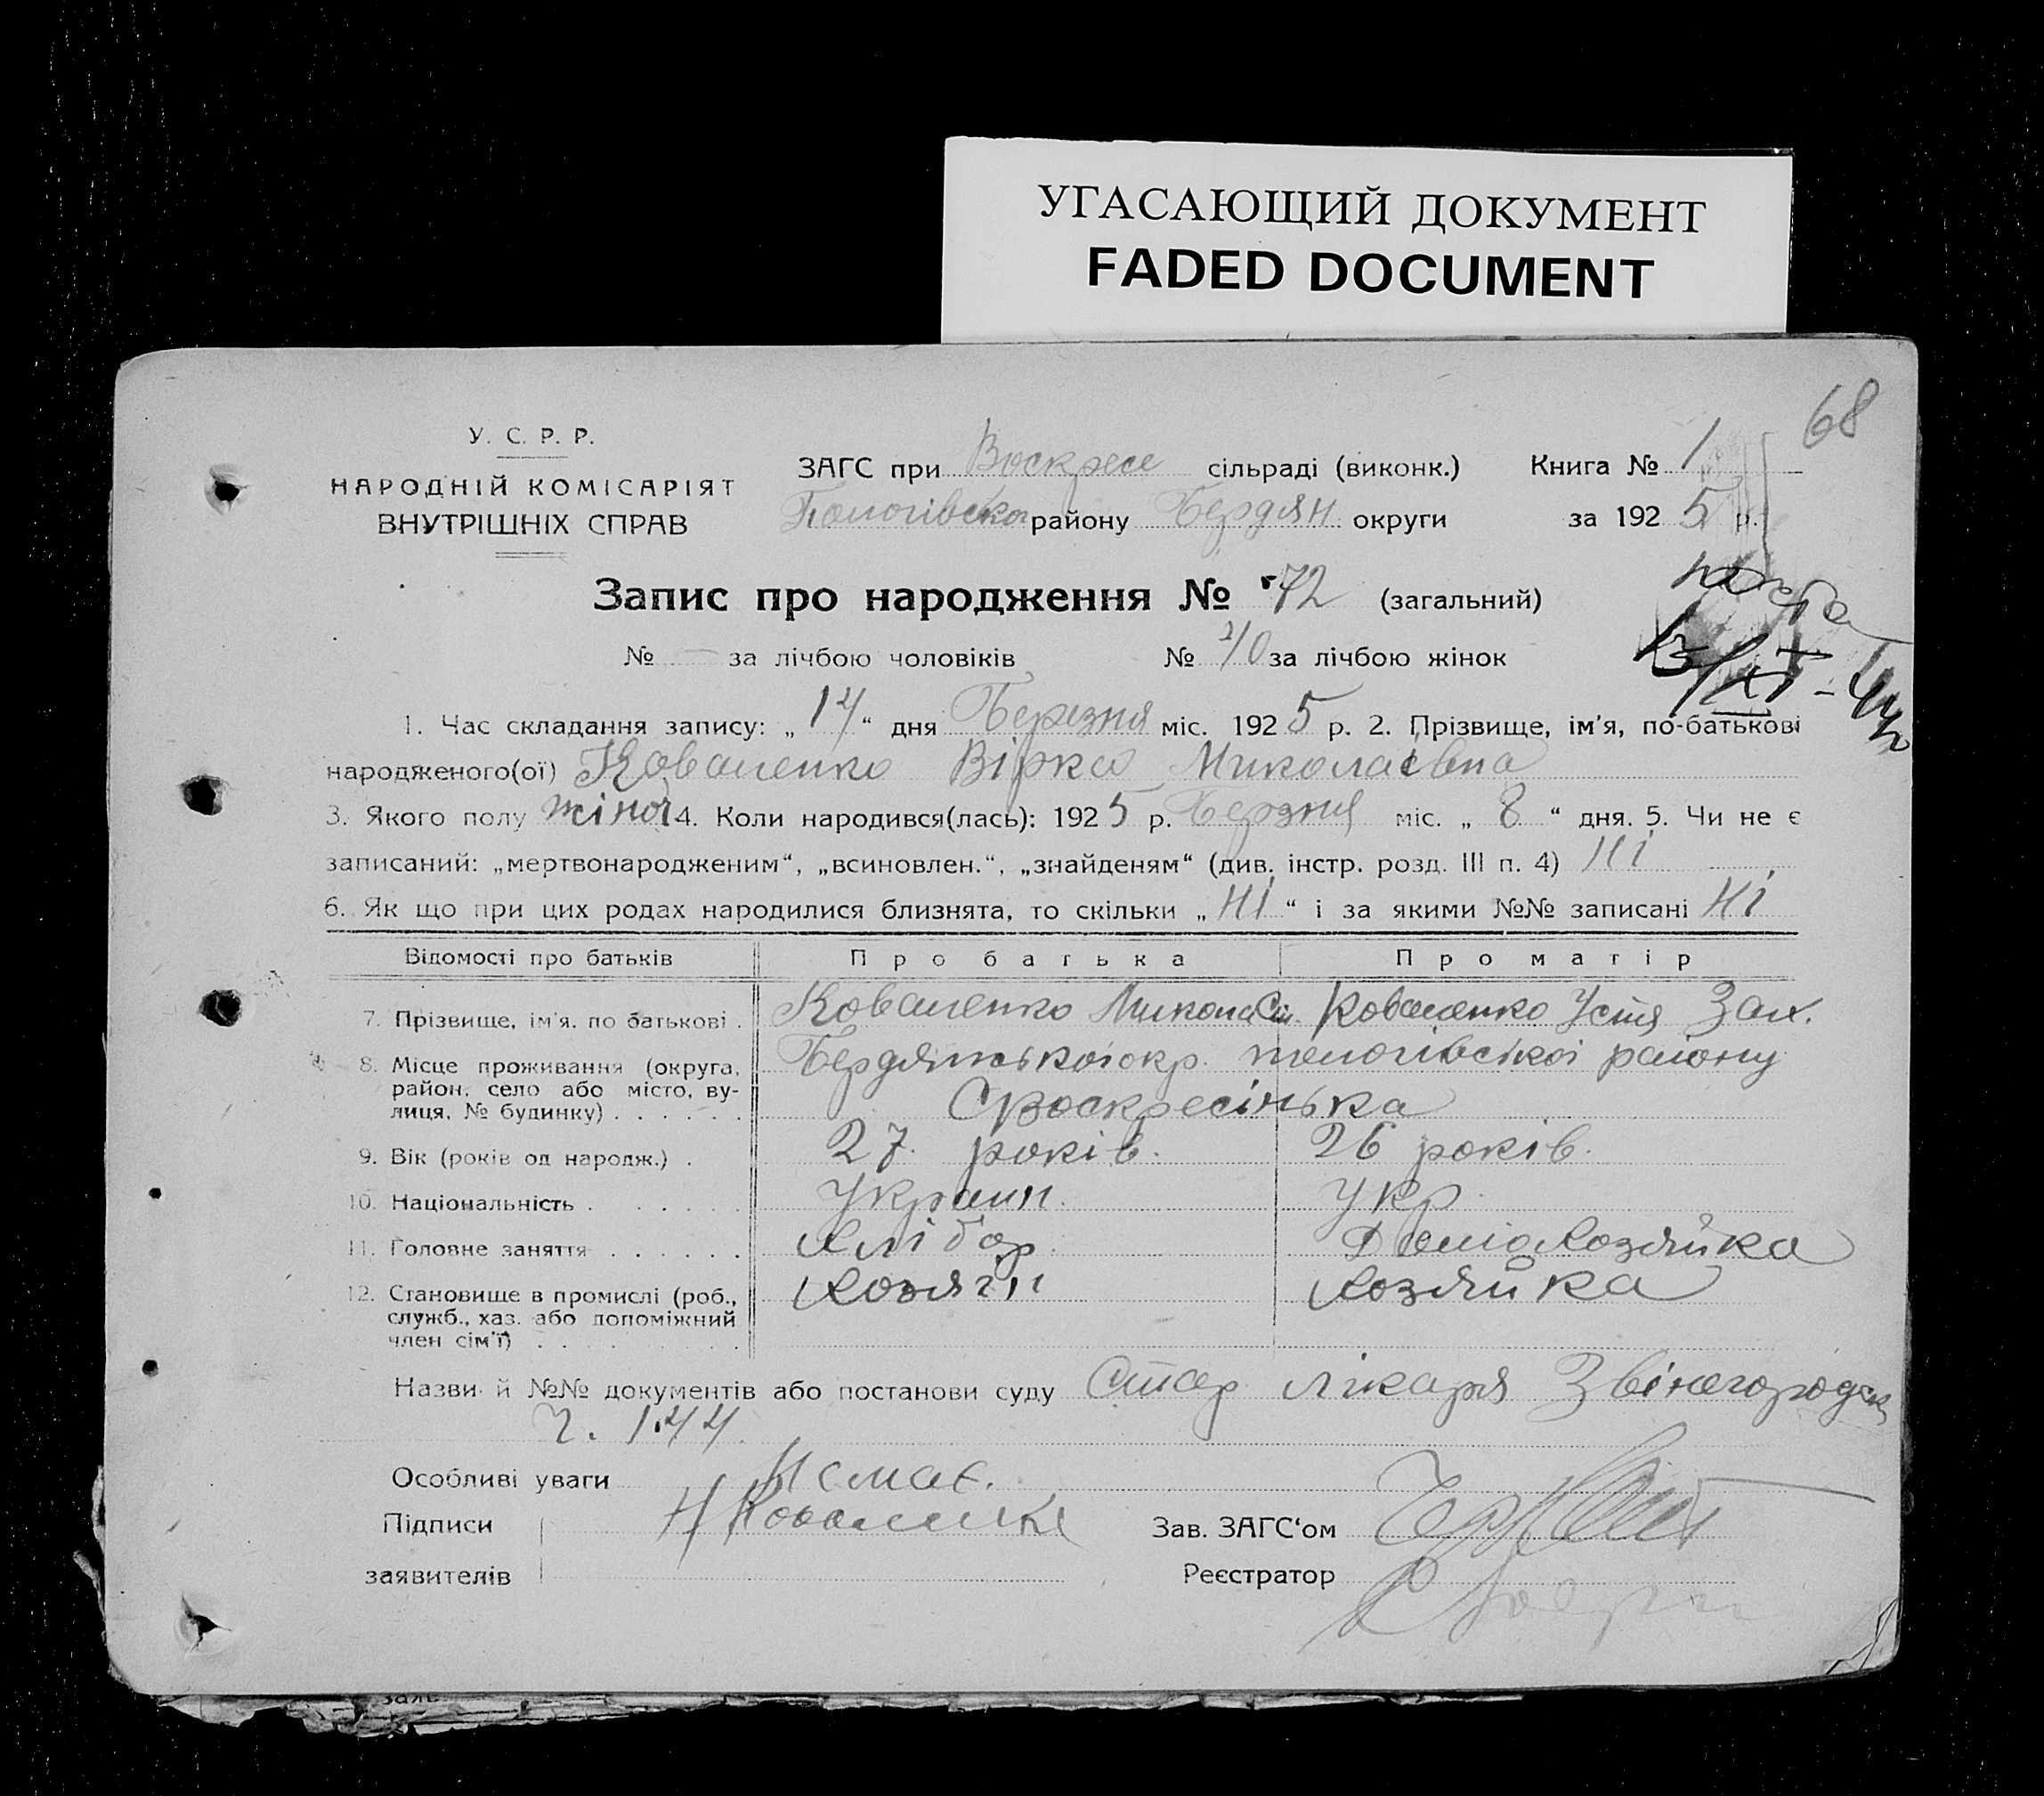 УГАСАЮЩИЙ ДОКУМЕНТ
FADED DOCUMENT
68
У. С. Р. Р.
НАРОДНІЙ КОМІСАРІЯТ
ВНУТРІШНІХ СПРАВ
ЗАГС при Воскресе сільраді (виконк.) Книга № 1
Пологівсько району Бердян округи за 1925 р.
Запис про народження № 72 (загальний)
№ — за лічбою чоловіків № 40 за лічбою жінок
1. Час складання запису: „14“ дня Березня міс. 1925 р. 2. Прізвище, ім'я, по-батькові
народженого(ої) Коваленко Вірка Миколаівна
3. Якого полу жіноч 4. Коли народився(лась): 1925 р. Берзня міс. „8“ дня. 5. Чи не є
записаний: „мертвонародженим“, „всиновлен.“, „знайденям“ (див. інстр. розд. III п. 4) Ні
6. Як що при цих родах народилися близнята, то скільки „Ні“ і за якими №№ записані Ні
Відомості про батьків Про батька Про матір
7. Прізвище, ім'я, по батькові . Коваленко Микола Коваленко Устя Зах.
8. Місце проживання (округа, Бердянськоі окр. пологівскоі району
район, село або місто, ву-
лиця, № будинку) . . . . . . С Воскресінька
9. Вік (років од народж.) . 27 років. 26 років.
10. Національність . . . . . . Украин. Укр
11. Головне заняття . . . . . . Хлібор. Доміохозяйка
12. Становище в промислі (роб., Хозяін Хозяйка
служб., хаз. або допоміжний
член сім'ї) . . . . . . . . .
Назви й №№ документів або постанови суду Спар лікаря Звінагородск
Ч. 144
Особливі уваги Немає.
Підписи Н Коваленко Зав. ЗАГС'ом
заявителів Реєстратор